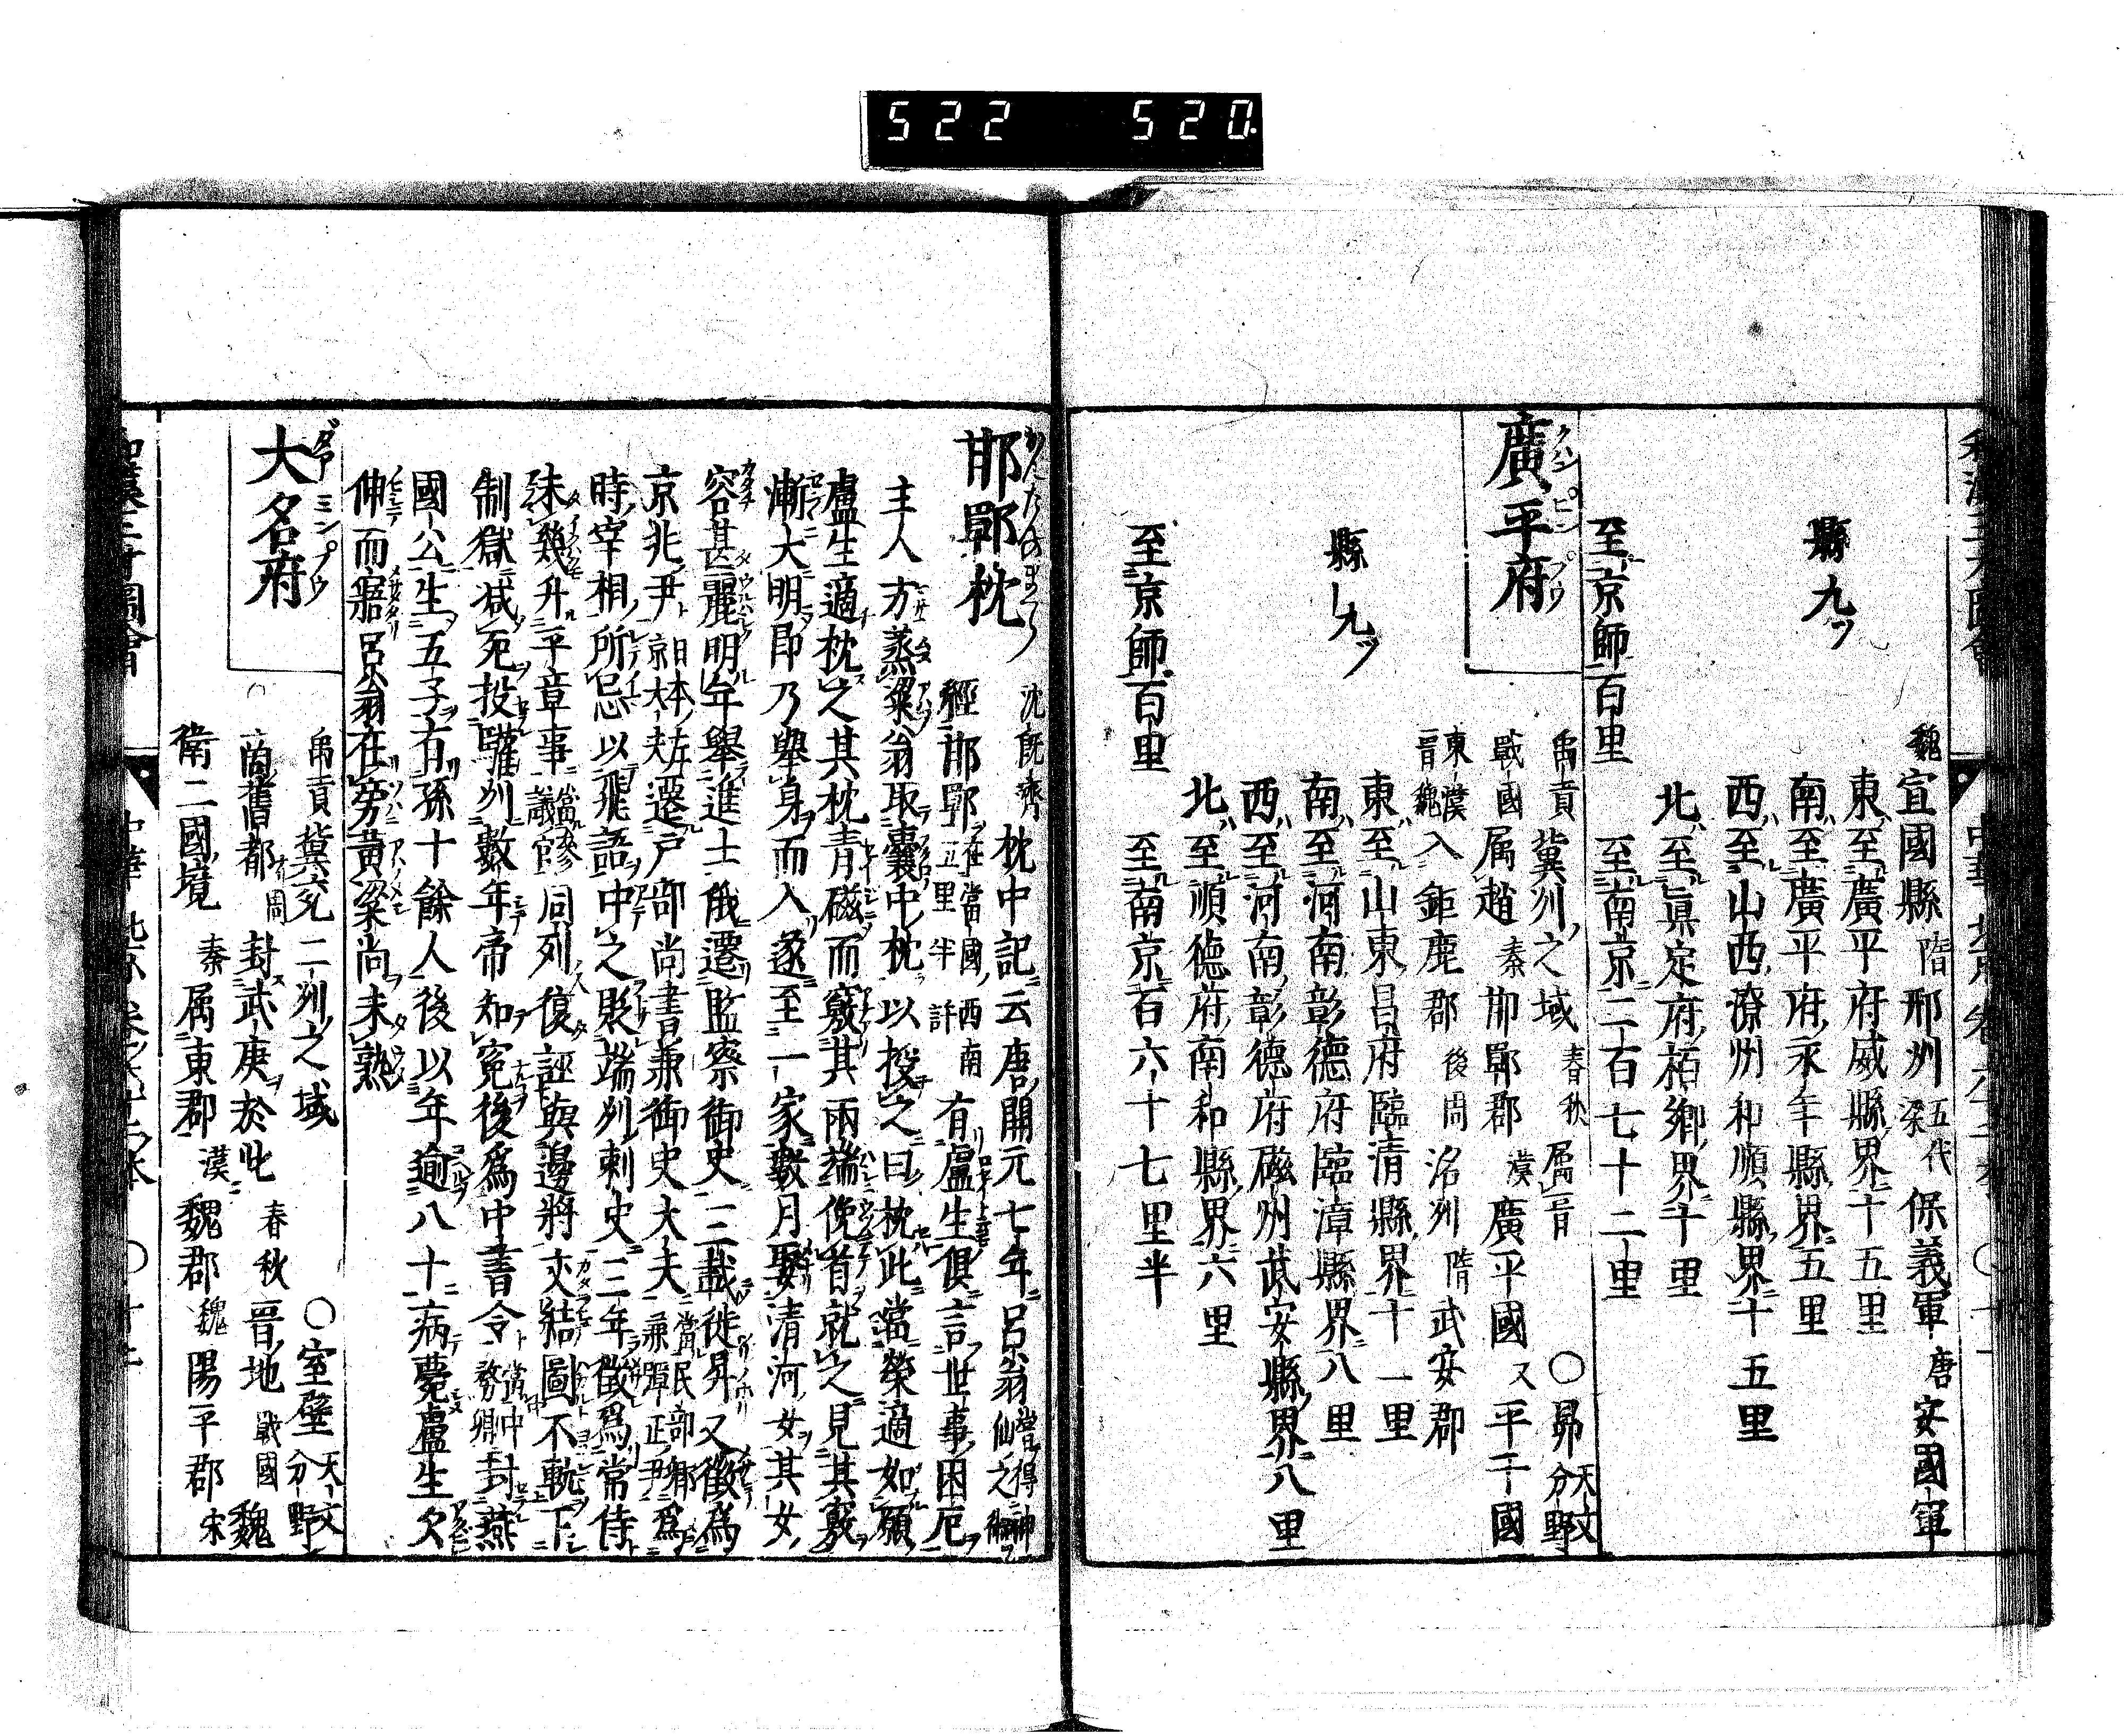 522 520
魏宜國縣 隋邢州 五代梁保義軍 唐安國軍
縣九ツ
東ハ至廣平府威縣界十五里
南ハ至廣平府永年縣界五里
西ハ至山西遼州和順縣界十五里
北ハ至眞定府栢鄉界十里
至京師百里 至南京二百七十二里
廣平府
禹貢冀州之域 春秋属晋 〇昴天文分野
戰國属趙 秦邯鄲郡 漢廣平國又平干國
東漢晋魏入鉅鹿郡 後周洺州 隋武安郡
縣九ツ
東ハ至山東昌府臨清縣界十一里
南ハ至河南彰德府臨漳縣界八里
西ハ至河南彰德府磁州武安縣界八里
北ハ至順德府南和縣界六里
至京師百里 至南京百六十七里半
邯鄲枕
沈既濟枕中記云唐開元七年呂翁嘗得神仙之術
經邯鄲在當國西南五里半許有盧生俱言世事困厄
主人方蒸粱翁取囊中枕以授之曰枕此當榮適如願
盧生適枕之其枕青磁而竅其兩端俛首就之見其竅
漸大明即乃舉身而入遂至一家數月娶清河女其女
容甚麗明年舉進士俄遷監察御史二三載徙昇又徵為
京兆尹日本左京大夫遷户部尚書兼御史大夫當民部卿兼彈正尹為
時宰相所忌以飛語中之貶端州刺史三年徵為常侍
未幾升平章事當參議官同列復誣與邊將交結圖不軌下
制獄减死投驩州數年帝知寃後爲中書令當中務卿封燕
國公生五子有孫十餘人後以年逾八十病薨盧生欠
伸而寤呂翁在旁黃粱尚未熟
大名府
禹貢冀兗二州之域 〇室壁天文分野
商舊都周封武庚於此 春秋晋地 戰國魏
衛二國境 秦属東郡 漢魏郡 魏陽平郡 宋